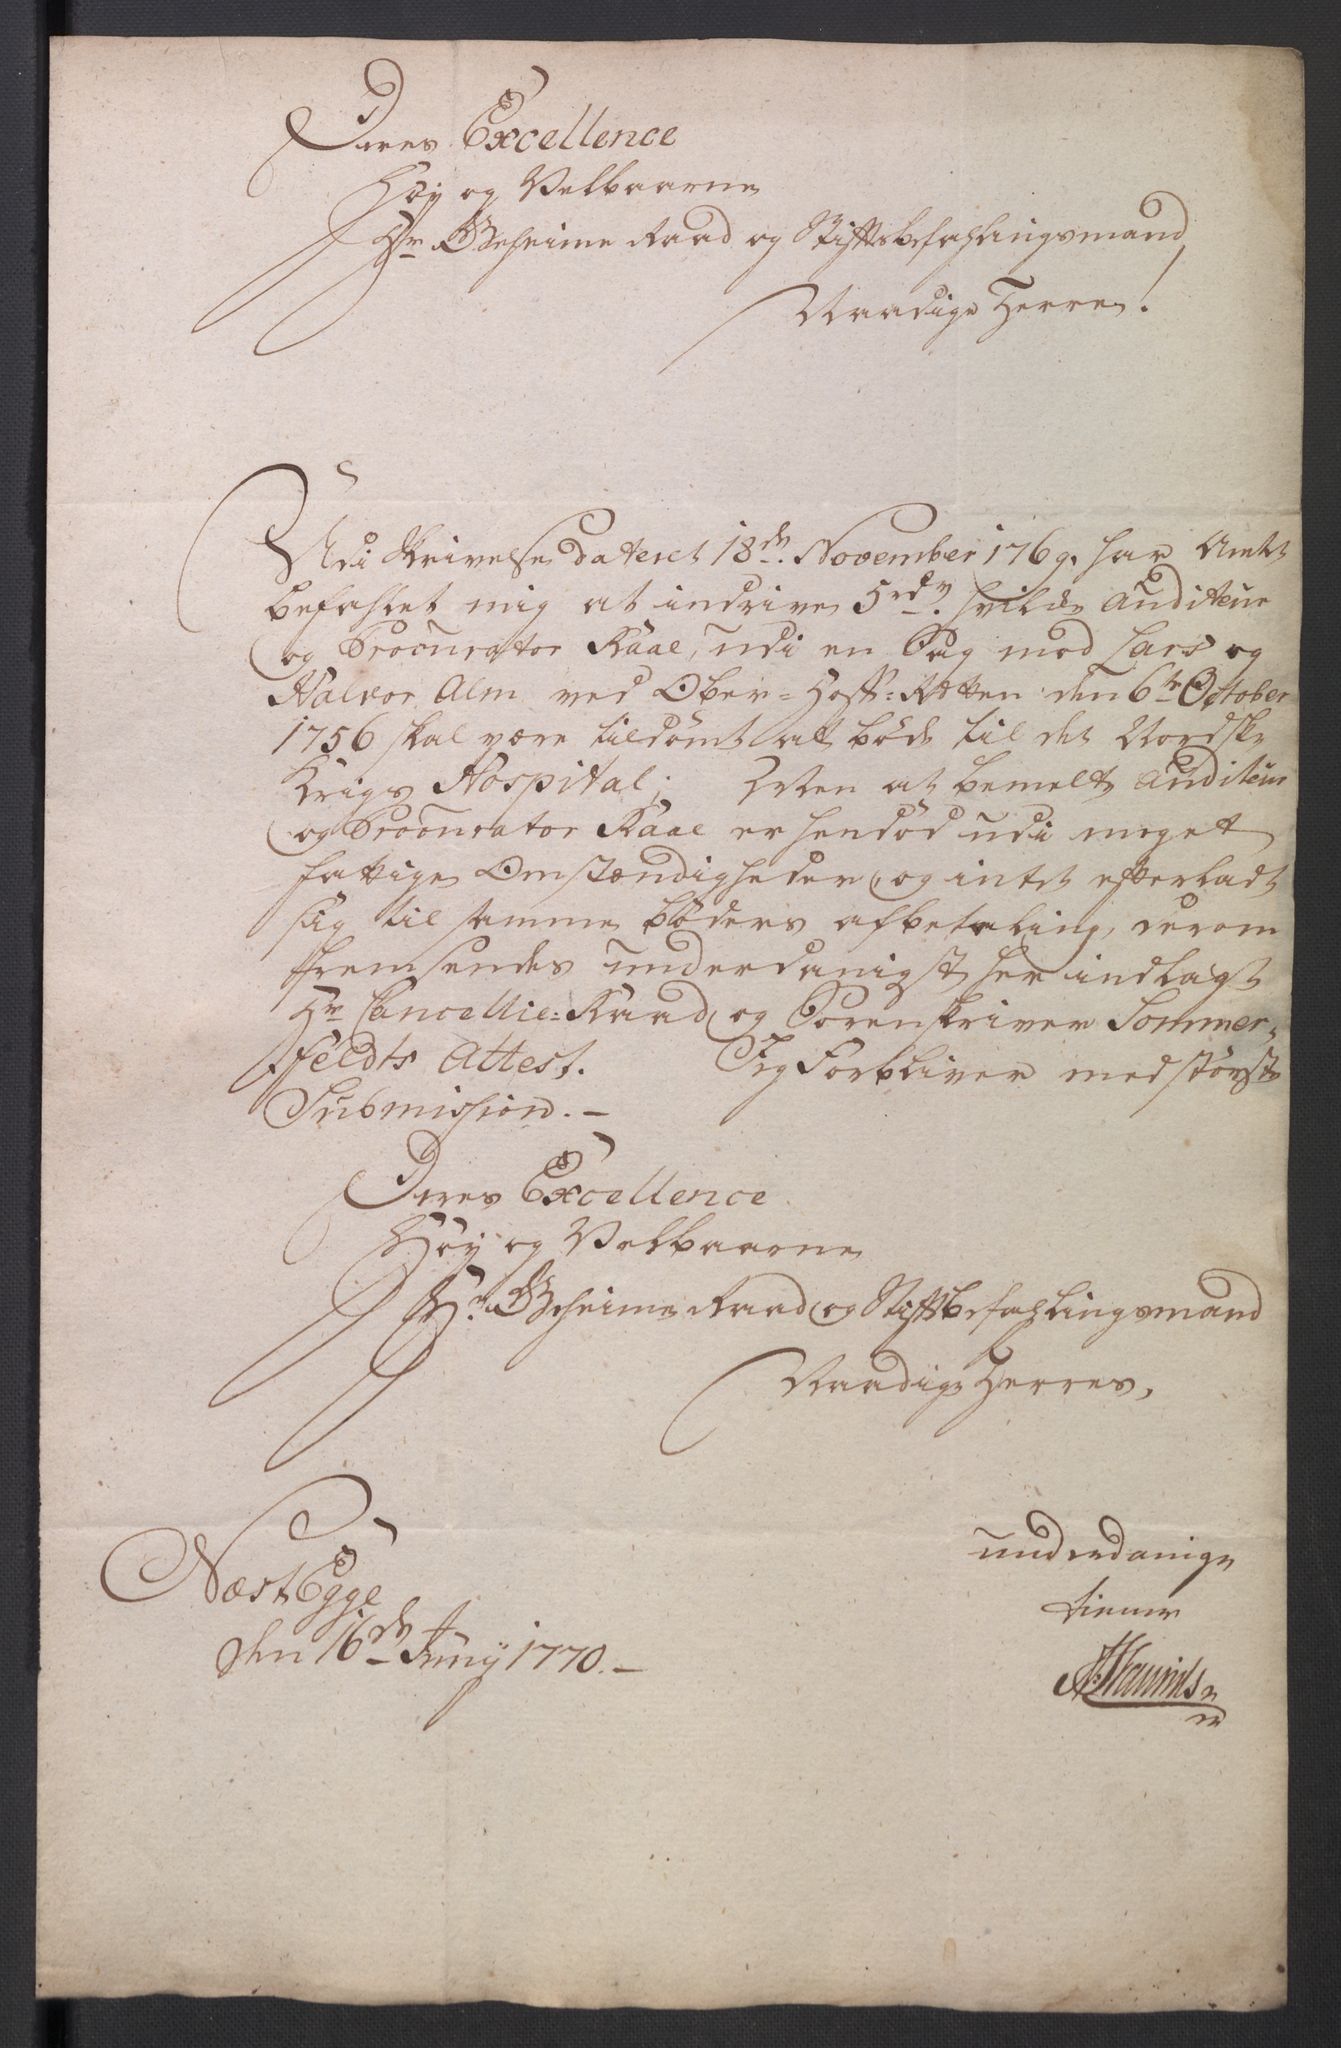 Deres Excellence
Høy og Velbaarne
Hr Geheime Raad og Stiftsbefahlingsmand,
Naadige Herre!
Udi Skrivelse dateret 18de November 1769. har Amtet
befahlet mig at indrive 5 rdr. hvilke Auditeur
og Procurator Kaal, udi en Sag mod Lars og
Halvor Alm ved Ober-Hoff-Retten den 6te October
1756 skal være tildømt at bøde til det Nordske
Krigs Hospital; Men at bemelte Auditeur
og Procurator Kaal er hendød udi meget
fattige Omstændigheder, og intet efterladt
sig til samme bøders afbetaling, derom
fremsendes underdanigst her indlagt
Hr Cancellie-Raad og Sorenskriver Sommer-
feldts Attest. Jeg Forbliver med størst
Submission.-
Deres Excellence
Høy og Velbaarne
Hr. Geheime Raad og Stiftsbefahlingsmand
Naadige Herres,
Næst Egge
den 16de Juny 1770.-
underdanige
tiener